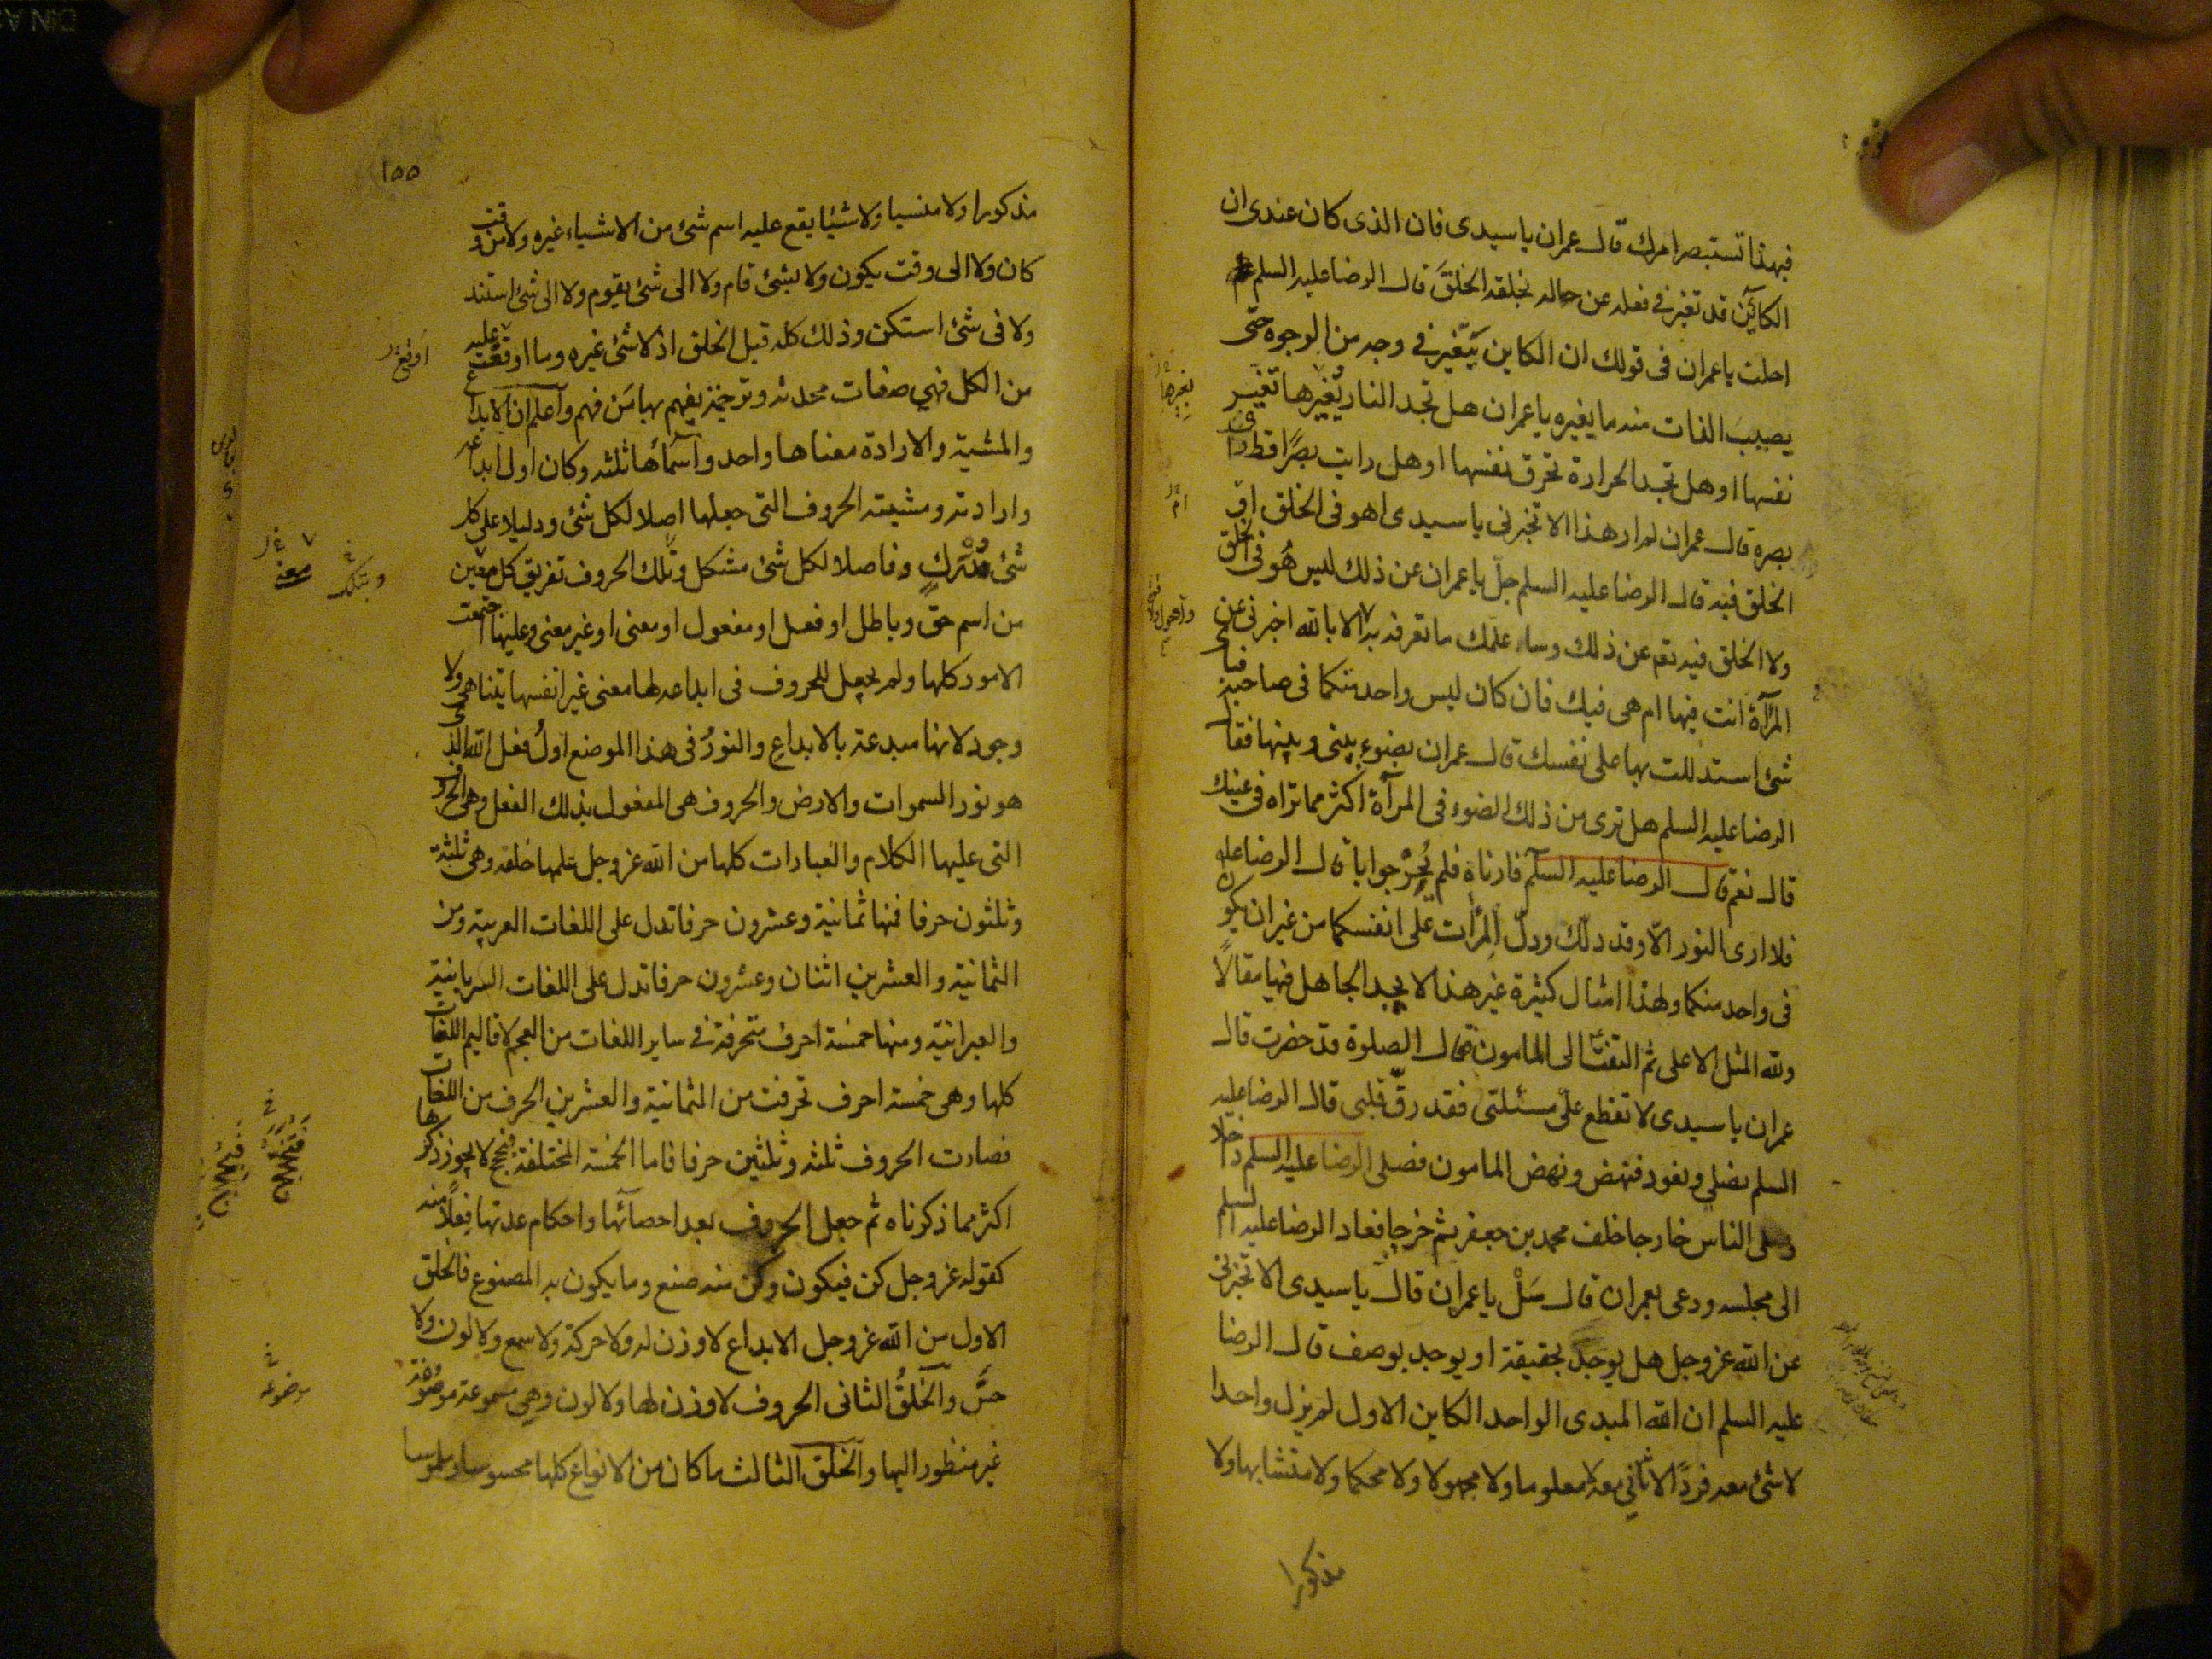 فبهذا تستبصر امرك قال عمران يا سيدى فان الذى كان عندى ان
الكائن قد تغير في فعله عن حاله بخلقه الخلق قال الرضا عليه السلم
احلت يا عمران فى قولك ان الكاين يتغير في وجه من الوجوه حتى
يصيب الذات منه ما يغيره يا عمران هل تجد النار يغيرها تغير
نفسها او هل تجد الحرارة تحرق نفسها او هل رايت بصرا قط راى
بصره قال عمران لم ار هذا الا تخبرنى يا سيدى اهو فى الخلق او
الخلق فيه قال الرضا عليه السلم جل يا عمران عن ذلك ليس هو فى الخلق
ولا الخلق فيه تعم عن ذلك وساء علمك ما تعرفه به الا بالله اخبرنى عن
المرآة انت فيها ام هى فيك فان كان ليس واحد منكما فى صاحبه فباى
شئ استدللت بها على نفسك قال عمران بضوء بينى وبينها فقال
الرضا عليه السلم هل ترى من ذلك الضوء فى المرآة اكثر مما تراه فى عينك
قال نعم قال الرضا عليه السلم فارناه فلم يحر جوابا قال الرضا عليه
فلا ارى النور الا وقد دلك ودل المرآت على انفسكما من غير ان يكون
فى واحد منكما ولهذا امثال كثيرة غير هذا لا يجد الجاهل فيها مقالا
ولله المثل الاعلى ثم التفت الى المامون فقال الصلوة قد حضرت قال
عمران يا سيدى لا تقطع على مسئلتى فقد رق قلبى قال الرضا عليه
السلم نصلى ونعود فنهض ونهض المامون فصلى الرضا عليه السلم داخلا
وصلى الناس خارجا خلف محمد بن جعفر ثم خرجا فعاد الرضا عليه السلم
الى مجلسه ودعى بعمران قال سل يا عمران قال يا سيدى الا تخبرنى
عن الله عز وجل هل يوحد بحقيقة او يوحد بوصف قال الرضا
عليه السلم ان الله المبدى الواحد الكاين الاول لم يزل واحدا
لا شئ معه فردا لا ثانى معه لا معلوما ولا مجهولا ولا محكما ولا متشابها ولا
مذكورا
يغيرها
ام
١٥٥
مذكورا ولا منسيا ولا شيئا يقع عليه اسم شئ من الاشياء غيره ولا من وقت
كان ولا الى وقت يكون ولا بشئ قام ولا الى شئ يقوم ولا الى شئ استند
ولا فى شئ استكن وذلك كله قبل الخلق اذ لا شئ غيره وما اوقعت عليه
من الكل فهي صفات محدثة وترجمة يفهم بها من فهم واعلم ان الابداع
والمشية والارادة معناها واحد واسماؤها ثلثه وكان اول ابداعه
وارادته ومشيته الحروف التى جعلها اصلا لكل شئ ودليلا على كل
شئ مدرك وفاصلا لكل شئ مشكل وتلك الحروف تفريق كل معين
من اسم حق وباطل او فعل او مفعول او معنى او غير معنى وعليها اجتمعت
الامور كلها ولم يجعل للحروف فى ابداعه لها معنى غير انفسها يتناهى ولا
وجود لانها مبدعة بالابداع والنور فى هذا الموضع اول فعل الله الذى
هو نور السموات والارض والحروف هى المفعول بذلك الفعل وهى الحروف
التى عليها الكلام والعبارات كلها من الله عز وجل علمها خلقه وهى ثلثة
وثلثون حرفا فمنها ثمانية وعشرون حرفا تدل على اللغات العربية ومن
الثمانية والعشرين اثنان وعشرون حرفا تدل على اللغات السريانية
والعبرانية ومنها خمسة احرف متحرفة في ساير اللغات من العجم لاقاليم اللغات
كلها وهى خمسة احرف تحرفت من الثمانية والعشرين الحرف من اللغات
فصارت الحروف ثلثه وثلثين حرفا فاما الخمسة المختلفة فبحجج لا يجوز ذكرها
اكثر مما ذكرناه ثم جعل الحروف بعد احصائها واحكام عدتها فعلا منه
كقوله عز وجل كن فيكون وكن منه صنع وما يكون به المصنوع فالخلق
الاول من الله عز وجل الابداع لا وزن له ولا حركة ولا سمع ولا لون ولا
حس والخلق الثانى الحروف لا وزن لها ولا لون وهى مسموعة موصوفة
غير منظور اليها والخلق الثالث ما كان من الانواع كلها محسوسا وملموسا
اوقع
وبتلك
معنى
موضوعه